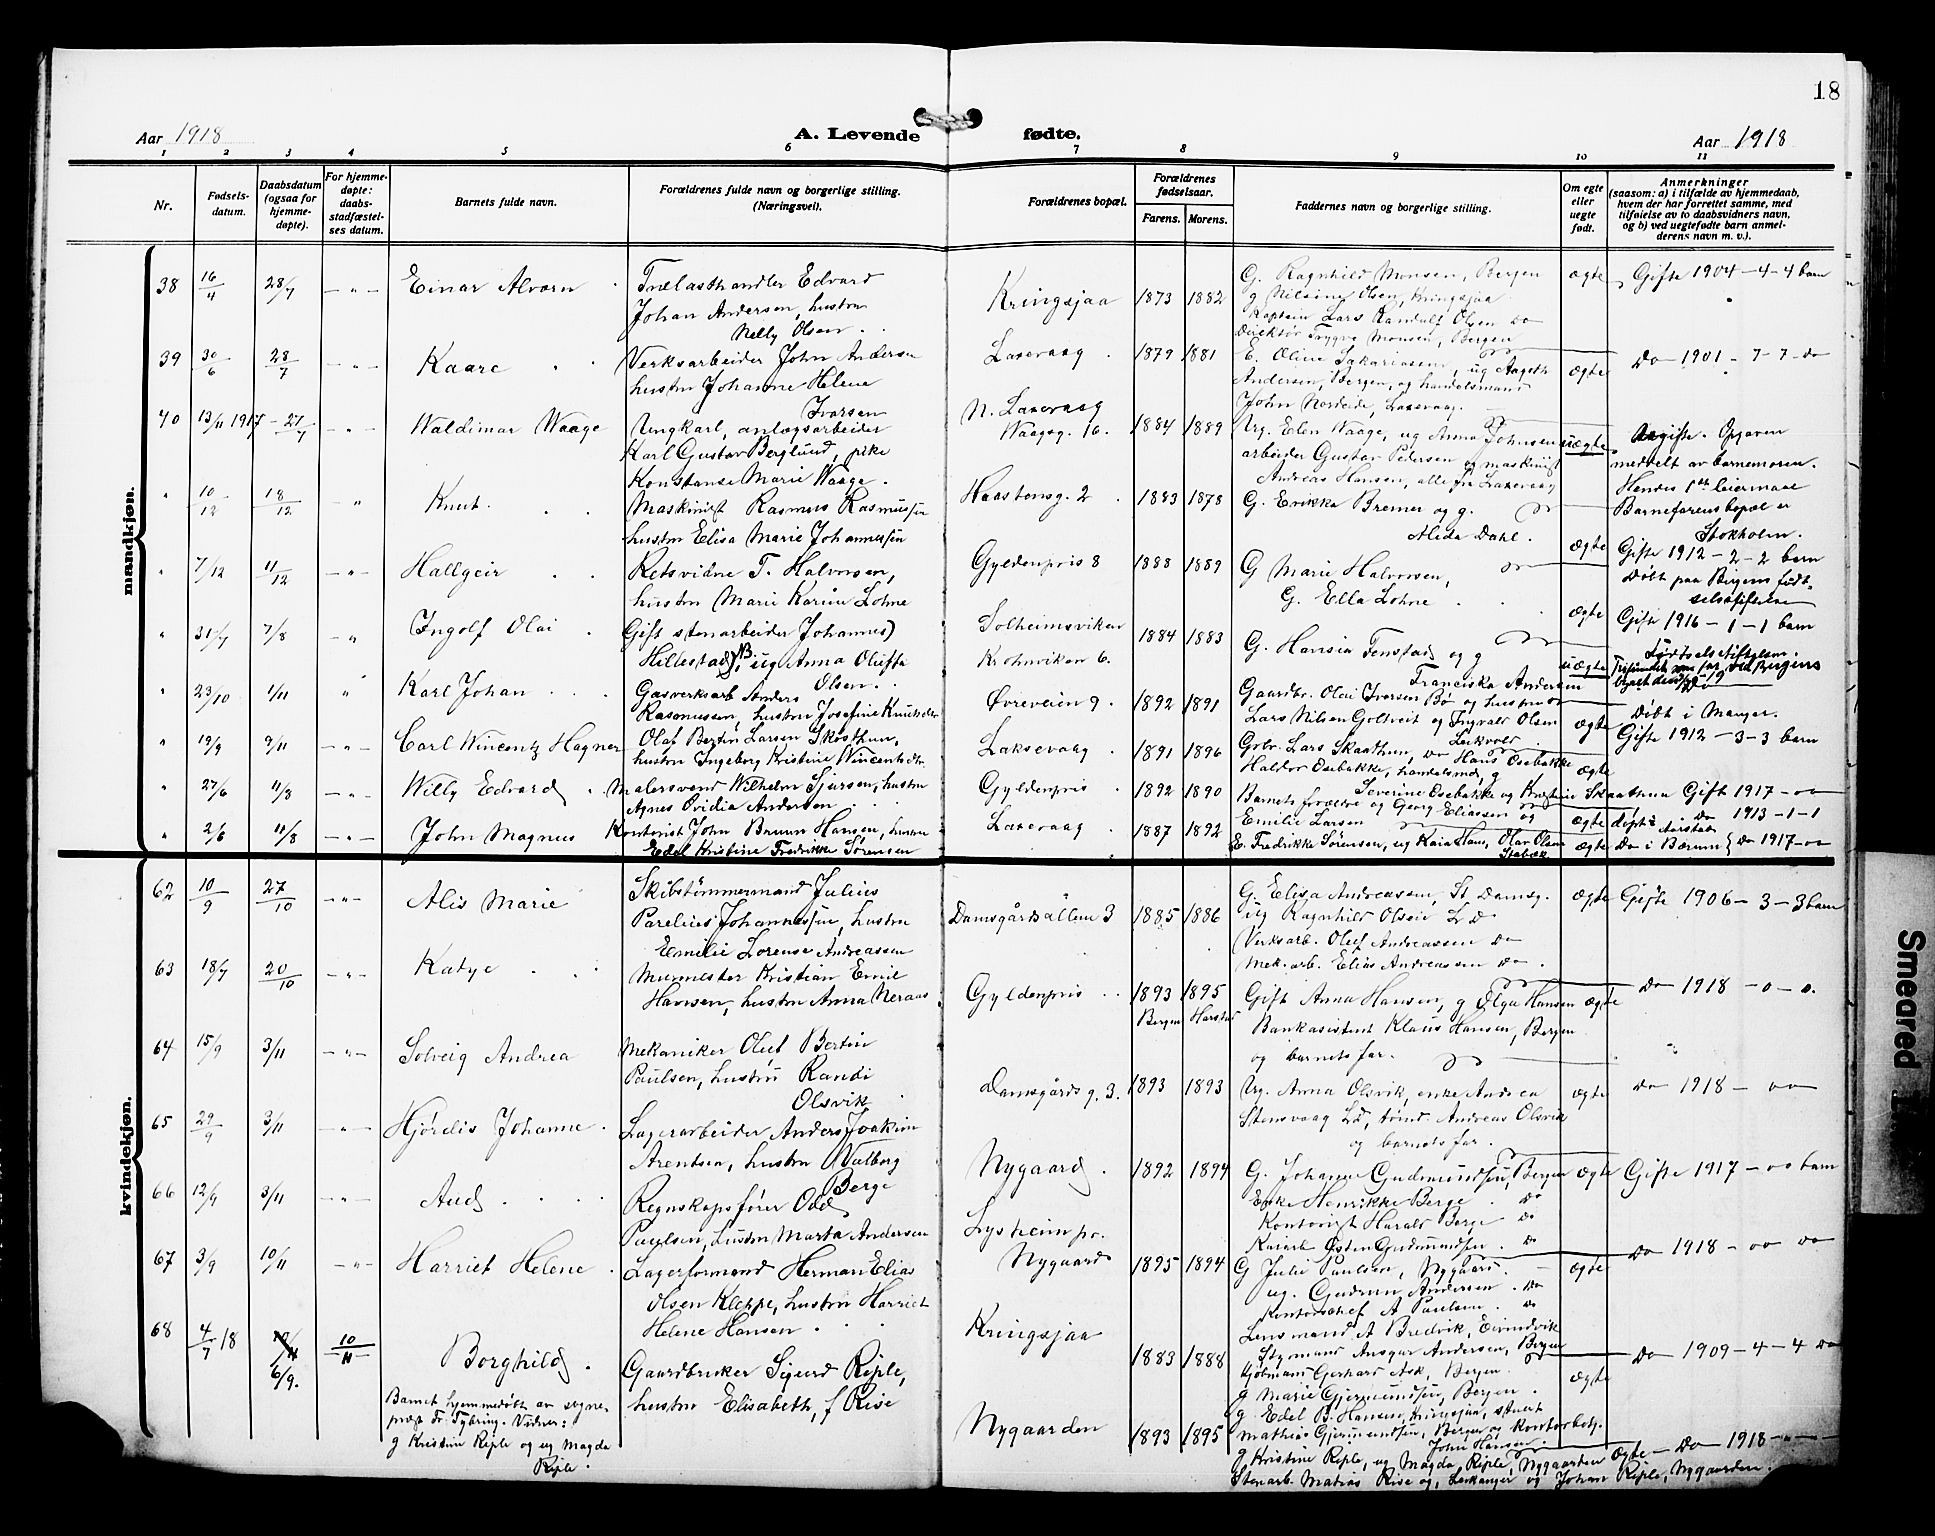 18
Aar 1918 A. Levende fødte. Aar 1918
1 2 3 4 5 6 7 8 9 10 11
Nr.
Fødsels-
datum.
Daabsdatum
(ogsaa for
hjemme-
døpte).
For hjemme-
døpte:
daabs-
stadfæstel-
ses datum.
Barnets fulde navn.
Forældrenes fulde navn og borgerlige stilling.
(Næringsvei).
Forældrenes bopæl.
Forældrenes
fødselsaar.
Farens. Morens.
Faddernes navn og borgerlige stilling.
Om egte
eller
uegte
født.
Anmerkninger
(saasom: a) i tilfælde av hjemmedaab,
hvem der har forrettet samme, med
tilføielse av to daabsvidners navn,
og b) ved uegtefødte barn anmel-
derens navn m. v.).
mandkjøn.
38 16/4 28/7 - " - Einar Alvorn
Trælasthandler Edvard
Johan Andersen, hustru
Nelly Olsen
Kringsjaa 1873 1882
G. Ragnhild Monsen, Bergen
g Nilsine Olsen, Kringsjaa
Kaptein Lars Randulf Olsen Do
Direktør Trygve Monsen, Bergen
ægte Gifte 1904 - 4 - 4 barn
39 30/6 28/7 - " - Kaare
Verksarbeider John Andersen
hustru Johanne Helene
Ivarsen
Laxevaag 1879 1881
E. Oline Sakariasen, ug Aagoth
Andersen, Bergen, og handelsmand
John Nordeide, Laxevaag.
ægte Do 1901 - 7 - 7 - Do
40 13/11 1917 - 21/7 - " - Waldimar Waage
Ungkarl, anlægsarbeider
Karl Gustav Berglund, pike
Konstanse Marie Waage.
N. Laxevaag
Waagsg. 16. 1884 1889
Ug. Elen Waage, ug Anna Johnsen
arbeider Gustav Pedersen og maskinist
Andreas Hansen, alle fra Laxevaag
uægte ugifte. Opgaven
meddelt av barnemoren.
Hendes 1ste leiermaal
Barnefarens bopæl er
Stokholm.
" 10/12 18/12 " Knut
Maskinist Rasmus Rasmussen
hustru Elisa Marie Johannessen
Haastensg. 2 1883 1878
G. Erikka Bremer og g.
Alida Dahl.
ægte Gifte 1912 - 2 - 2 barn
Døbt paa Bergens født-
selsstiftelse
" 7/12 11/12 - " - Hallgeir
Retsvidne T. Halvorsen,
hustru Marie Karine Lohne
Gyldenpris 8 1888 1889
G Marie Halvorsen,
G. Ella Lohne
ægte Gifte 1916 - 1 - 1 barn
" 31/7 7/8 " Ingolf Olai
Gift stenarbeider Johannes
Hillestad, ug Anna Olufta
Olsen
Solheimsviken
Krohnviken 6. 1884 1883
G. Hansia Tenstad og g
Franciska Andersen
uægte Fødselsstiftelsen.
" 23/10 1/11 " Karl Johan
Gasverksarb Anders
Rasmussen, hustru Josefine Knutsdtr
Øvreveien 9. 1892 1891
Gaardbr. Olai Ivarsen Bø og hustru
Lars Nilsen Goltveit og Ingvald Olsen
Leikvold
ægte Døbt i Manger.
Gifte 1912 - 3 - 3 barn
" 19/9 9/11 - " - Carl Wincentz Hagner
Olaf Bertin Larsen Skosthun,
hustru Ingeborg Kristine Wincentsdtr.
Laksevaag 1891 1896
Grbr. Lars Skaathun, Do Hans Osebakke
Haldor Osebakke, handelsmd, g
Severine Osebakke og Kristine Skaathun
ægte Gift 1917 - oo
" 27/6 11/8 - " - Willy Edvard
Malersvend Wilhelm Sjursen, hustru
Agnes Ovidia Andersen
Gyldenpris 1892 1890
Barnets forældre og Georg Eliassen og
Emilie Larsen
ægte Do 1913 - 1 - 1
" 2/6 11/8 - " - John Magnus
Kontorist John Bruun Hansen, hustru
Edel Kristine Fredrikke Sørensen
Laxevaag 1887 1892
E. Fredrikke Sørensen, ug Kaia Hans, Olav Olsen
Stabæk
ægte Do i Bærum Do 1917 - oo
kvindekjøn.
62 10/9 27/10 - " - Alis Marie
Skibstømmermand Julius
Parelius Johannessen, hustru
Emilie Lorense Andreassen
Damsgårdsallen 3 1885 1886
G Elisa Andreassen, St. Damsg.
ug Ragnhild Olsen Ld
Verksarb. Oluf Andreassen Do
Mek. arb. Elias Andreassen Do.
ægte Gifte 1906 - 3 - 3 barn
63 18/7 20/10 - " - Katye
Murmester Kristian Emil
Hansen, hustru Anna Neraas
Gyldenpris 1893 1895
Bergen Harstad
Gift Anna Hansen, g Olga Hansen
Bankasistent Klaus Hansen, Bergen
og barnets far.
ægte Do 1918 - o - o.
64 15/9 3/11 - " - Solveig Andrea
Mekaniker Oluf Bertin
Paulsen, hustru Randi
Olsvik
Damsgårdsg. 3. 1893 1893
Ug. Anna Olsvik, enke Andrea
Stensvaag Ld, tønd. Andreas Olsvik
og barnets far.
ægte Do 1918 - oo
65 29/9 3/11 - " - Hjørdis Johanne.
Lagerarbeider Anders Joakim
Arentsen, hustru Valborg
Berge
Nygaard. 1892 1894
G. Johanne Gudmundsen, Bergen
Enke Henrikke Berge Do
Kontorist Harald Berge Do
Østen Gudmundsen. Do
ægte Gifte 1917 - oo barn
66 12/9 3/11 - " - Aud
Regnskapsfører Odd
Paulsen, hustru Marta Andersen
Lysheim pr.
Nygaard 1895 1894
G Julie Paulsen, Nygaard.
ug. Gudrun Andersen Do
Kontorchef A Paulsen Do
Lensmand A Bredvik, Eivindvik
ægte Do 1918 - oo Do
67 3/9 10/11 - " - Harriet Helene
Lagerformand Herman Elias
Olsen Kleppe, hustru Harriet
Helene Hansen
Kringsjaa 1883 1888
Styrmand Ansgar Andersen, Bergen
Kjøbmand Gerhard Ask, Bergen
g Marie Gjermundsen, Bergen
g. Edel B. Hansen, Kringsjaa, stuert
Mathias Gjermundsen, Bergen og Kontorbetj.
John Hansen.
ægte Do 1909 - 4 - 4 Do
68 4/7 18 6/9. 10/11 Borghild.
Barnet hjemmedøbt av sogne-
prest Fr. Tybring. Vidner:
g Kristine Riple og ug Magda
Riple.
Gaardbruker Sigurd Riple,
hustru Elisabeth, f Rise
Nygaarden 1893 1895
g. Kristine Riple, ug Magda Riple, Nygaarden
Stenarb. Matias Rise og, Leikanger og Johan Riple, Nygaarden.
ægte - Do - 1918 - " -
Smeared